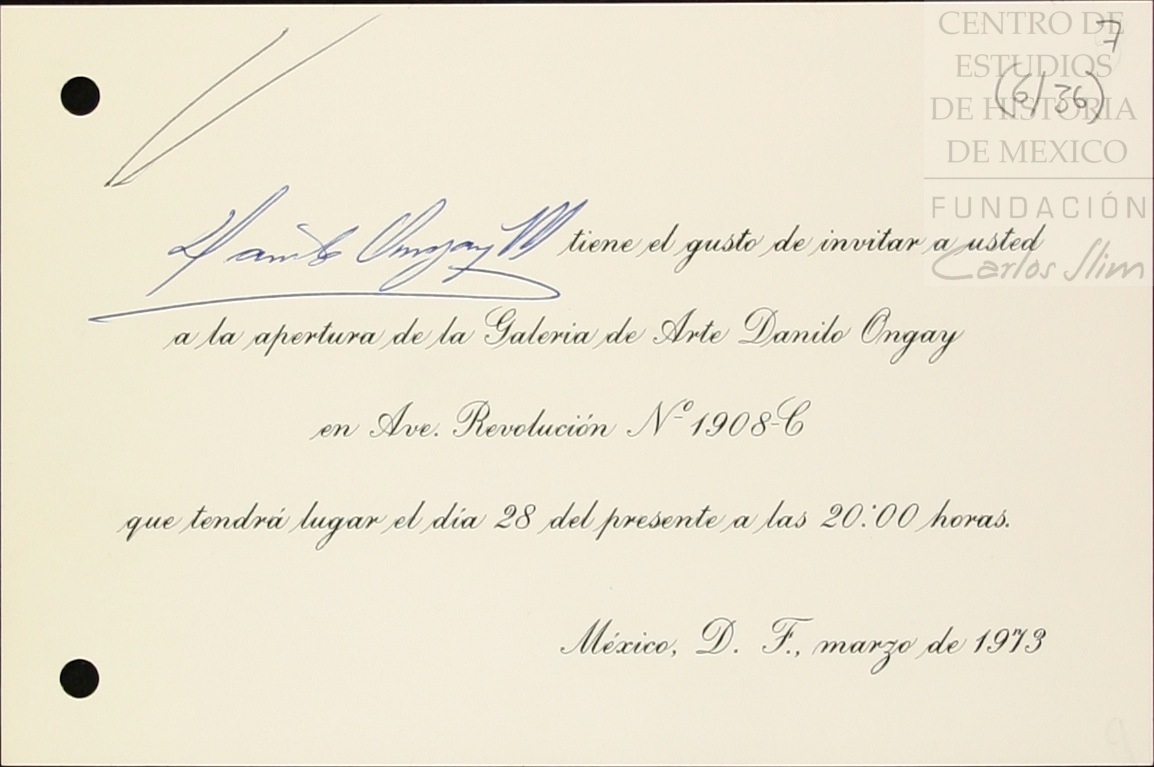 CENTRO DE
ESTUDIOS
DE HISTORIA
DE MEXICO
FUNDACIÓN
Carlos Slim
7
(6/36)
Danilo Ongay M tiene el gusto de invitar a usted
a la apertura de la Galeria de Arte Danilo Ongay
en Ave. Revolución Nº 1908-C
que tendrá lugar el día 28 del presente a las 20:00 horas.
México, D. F., marzo de 1973